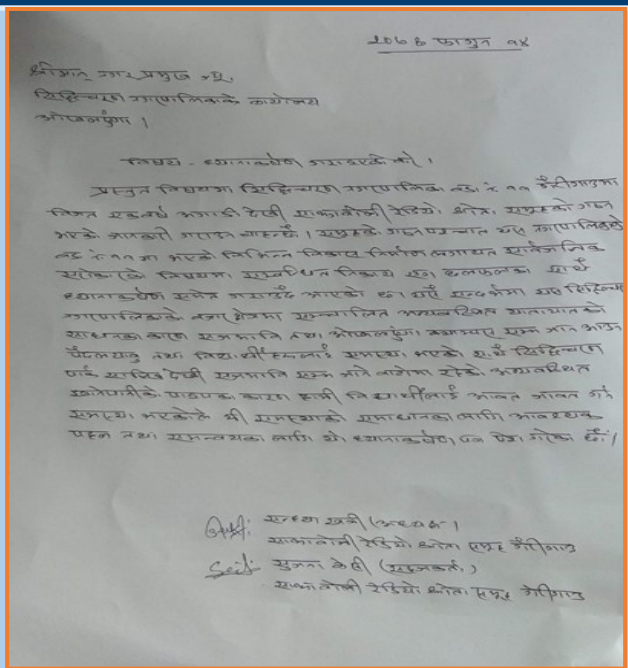 २०७६ फागुन १४
श्रीमान् नगर प्रमुख ज्यू,
सिद्धिचरण नगरपालिकाको कार्यालय
ओखलढुंगा ।
विषय - ध्यानाकर्षण गराइएको बारे ।
प्रस्तुत विषयमा सिद्धिचरण नगरपालिका वडा नं ११ जैरीगाउमा
विगत एकवर्ष अगाडी देखी साकोबोली रेडियो श्रोता समुहको गठन
भएको जानकारी गराउन चाहन्छौ । समुहको गठन पश्चात यस नगरपालिकाको
वडा नं ११ मा भएको विभिन्न विकास निर्माण लगायत सार्वजनिक
सरोकारको विषयमा सम्बन्धित निकाय संग छलफलका साथै
ध्यानाकर्षण समेत गराउँदै आएको छ । यसै सन्दर्भमा यस सिद्धिचरण
नगरपालिकाको बजार क्षेत्रमा सञ्चालित अव्यवस्थित यातायातको
साधनका कारण तथा ओखलढुंगा सम्म जान आउन
पैदलयात्रु तथा विद्यार्थीहरूलाई समस्या भएको साथै सिद्धिचरण
पार्क देखी सम्म जाने बाटोमा रहेको अव्यवस्थित
खानेपानीको पाइपका कारण हामी विद्यार्थीलाई आवत जावत गर्न
समस्या भएकोले सो समस्याको समाधानका लागि आवश्यक
पहल तथा समन्वयका लागि यो ध्यानाकर्षण पत्र पेश गरेका छौं ।
सन्ध्या खत्री (अध्यक्ष)
साकोबोली रेडियो श्रोता समुह जैरीगाउ
सुजता केसी (सहजकर्ता)
साकोबोली रेडियो श्रोता समुह जैरीगाउ